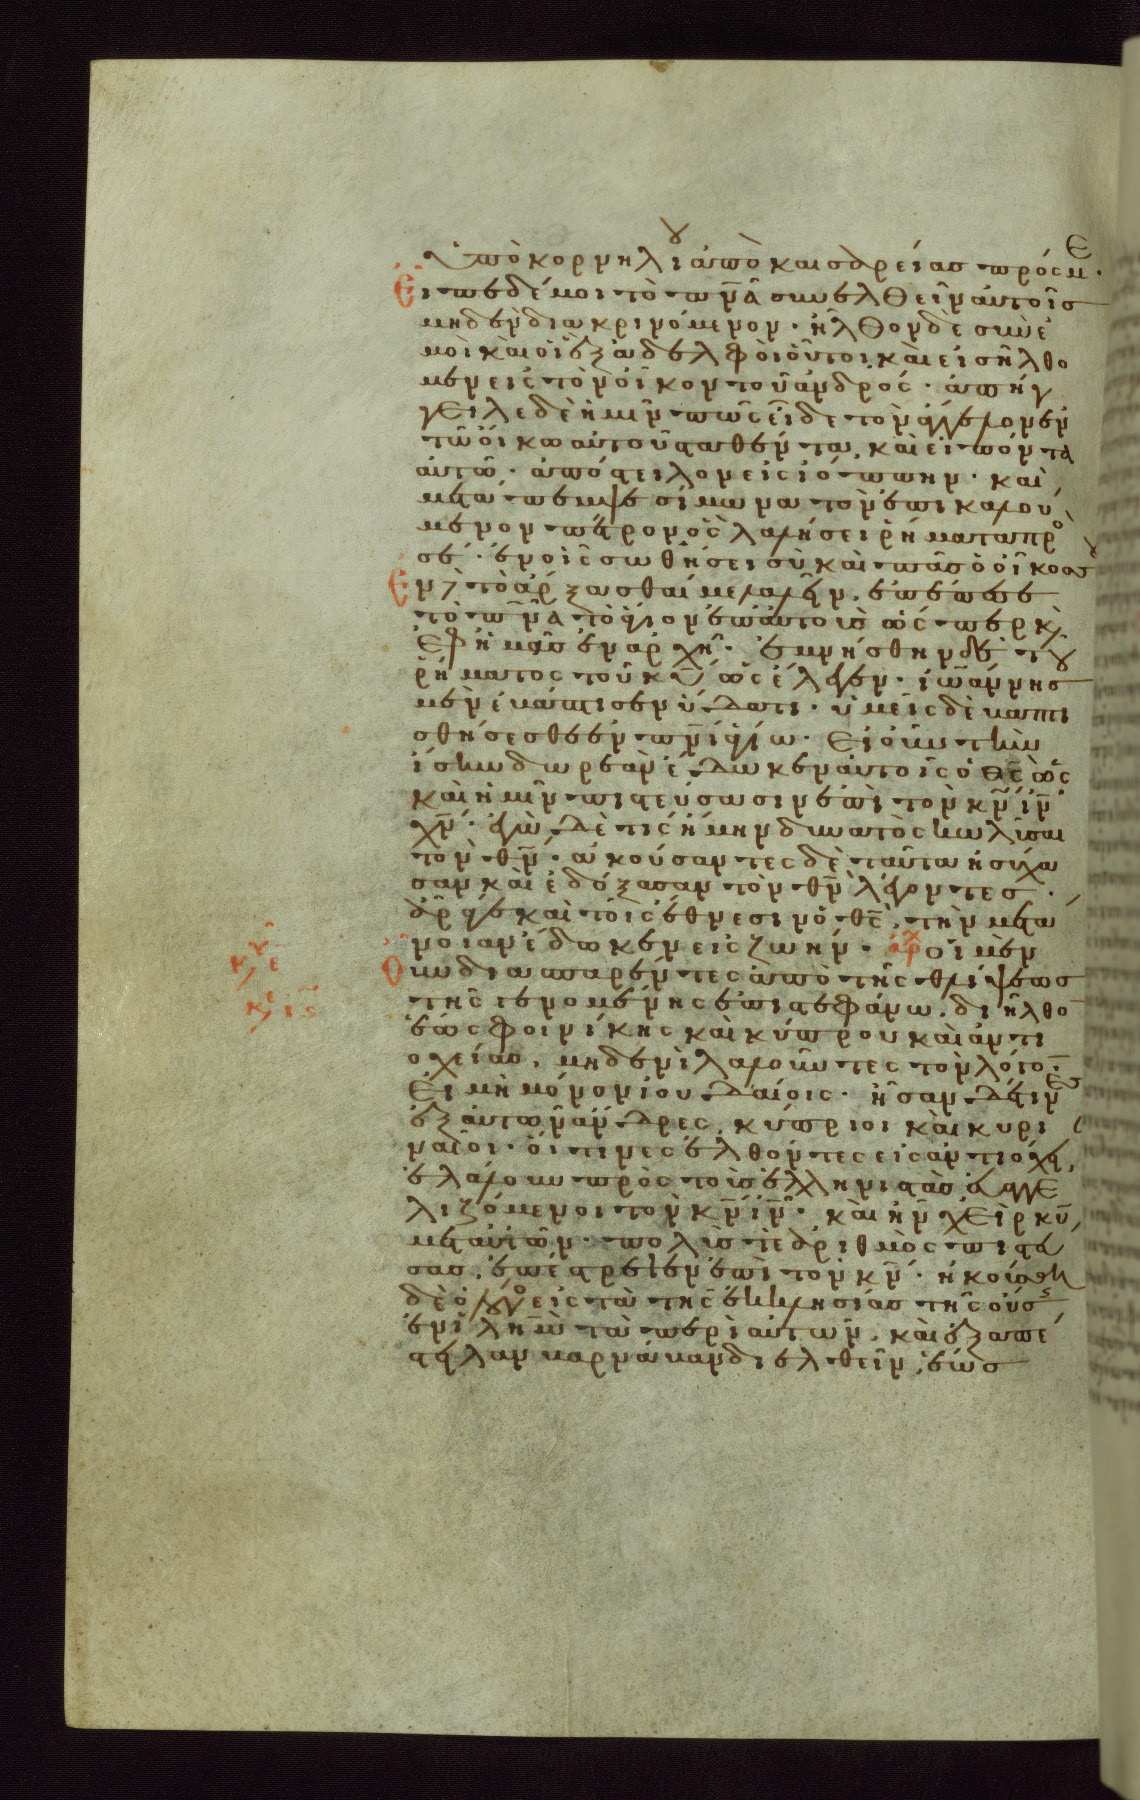 ὑπὸ κορνηλίου ἀπὸ καισαρείας πρός με·
Εἶπε δέ μοι τὸ πν̅α συνελθεῖν αὐτοῖς
μηδὲν διακρινόμενον· ἦλθον δὲ σὺν ἐ
μοὶ καὶ οἱ ἓξ ἀδελφοὶ οὗτοι, καὶ εἰσήλθο
μεν εἰς τὸν οἶκον τοῦ ἀνδρός· ἀπήγ
γειλε δὲ ἡμῖν πῶς εἶδε τὸν ἄγγελον ἐν
τῶ οἴκω αὐτοῦ σταθέντα, καὶ εἰπόντα
αὐτῶ· ἀπόστειλον εἰς ἰόππην· καὶ
μετάπεμψε σίμωνα τὸν ἐπικαλού
μενον πέτρον ὃς λαλήσει ῥήματα πρὸ
σέ· ἐν οἷς σωθήσει σὺ καὶ πᾶς ὁ οἶκος σου
Ἐν δὲ τὸ ἄρξασθαί με λαλεῖν, ἐπέπεσε
τὸ πν̅α τὸ ἅγιον ἐπ αὐτοὺς ὥσπερ κ
ἐφ ἡμᾶς ἐν ἀρχῆ· ἐμνήσθην δὲ τοῦ
ῥήματος τοῦ κυ̅ ὡς ἔλεγεν· ἰωάννης
μὲν ἐβάπτισεν ὕδατι· ὑμεῖς δὲ βαπτι
σθήσεσθε ἐν πν̅ι ἁγίω· Εἰ οὖν τὴν
ἴσην δωρεὰν ἔδωκεν αὐτοῖς ὁ θς̅ ὡς
καὶ ἡμῖν πιστεύσασιν ἐπὶ τὸν κν̅ ιν̅
χν̅· ἐγὼ δὲ τίς ἤμην δυνατὸς κωλῦσαι
τὸν θν̅· ἀκούσαντες δὲ ταῦτα ἡσύχα
σαν καὶ ἐδόξασαν τὸν θν̅ λέγοντες·
ἄρα γε καὶ τοῖς ἔθνεσιν ὁ θς̅, τὴν μετά
νοιαν ἔδωκεν εἰς ζωήν· ἀρχ οἱ μὲν
Οὖν διασπαρέντες ἀπὸ τῆς θλίψεως
τῆς γενομένης ἐπὶ στεφάνω, διῆλθο
ἕως φοινίκης καὶ κύπρου καὶ ἀντι
οχείας, μηδενὶ λαλοῦντες τὸν λόγον
Εἰ μὴ μόνον ἰουδαίοις· ἦσαν δέ τινες
ἐξ αὐτῶν ἄνδρες κύπριοι καὶ κυρι
ναῖοι· οἵτινες ἐλθόντες εἰς ἀντιόχει
ἐλάλουν πρὸς τοὺς ἑλληνιστὰς εὐαγγε
λιζόμενοι τὸν κν̅ ιν̅· καὶ ἦν χεὶρ κυ̅
μετ αὐτῶν· πολύς τε ἀριθμὸς πιστεύ
σας, ἐπέστρεψεν ἐπὶ τὸν κν̅· ἠκούσθη
δὲ ὁ λόγος εἰς τὰ ὦτα τῆς ἐκκλησίας τῆς οὔσης
ἐν ἱλημ̅ τὰ περὶ αὐτῶν, καὶ ἐξαπέ
στειλαν βαρνάβαν διελθεῖν, ἕως